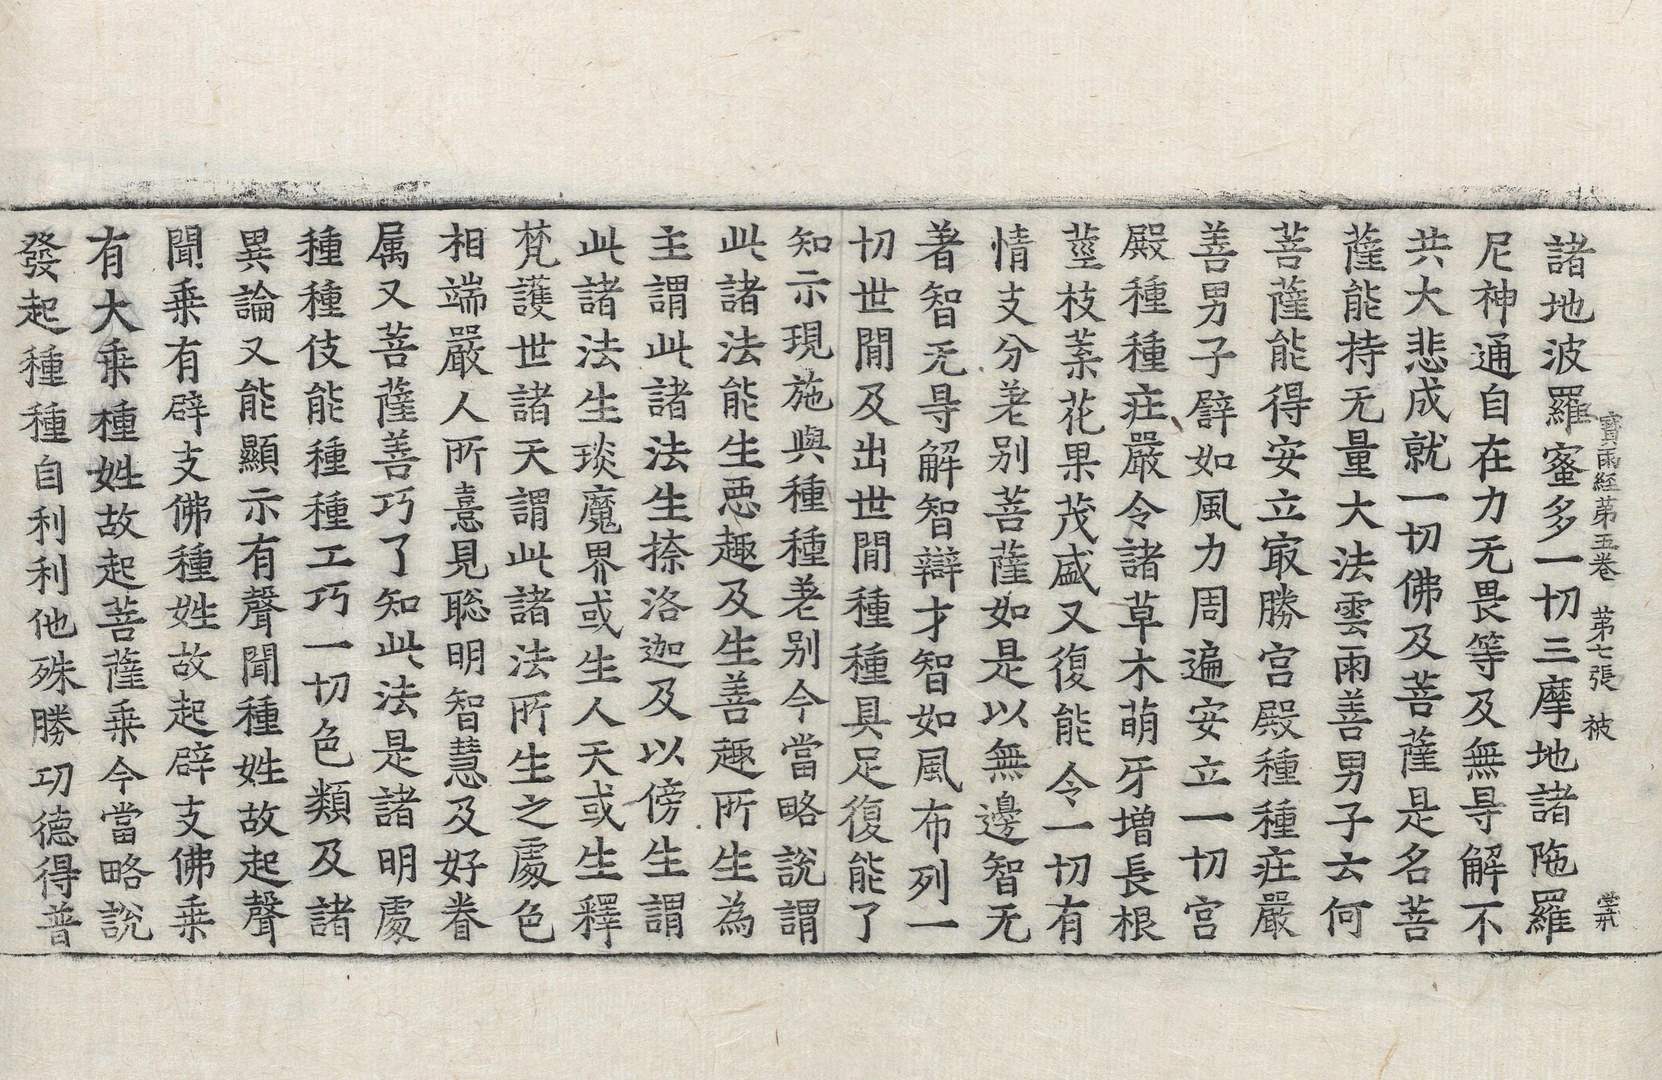 寶雨經第五卷　第七張　被
諸地波羅蜜多一切三摩地諸陁羅
尼神通自在力无畏等及無㝵解不
共大悲成就一切佛及菩薩是名菩
薩能持无量大法雲雨善男子云何
菩薩能得安立㝡勝宫殿種種莊嚴
善男子譬如風力周遍安立一切宫
殿種種莊嚴令諸草木萌牙增長根
莖枝葉花果茂盛又復能令一切有
情支分差别菩薩如是以無邊智无
著智无㝵解智辯才智如風布列一
切世間及出世間種種具足復能了
知示現施與種種差别今當略說謂
此諸法能生悪趣及生善趣所生為
主謂此諸法生捺洛迦及以傍生謂
此諸法生琰魔界或生人天或生釋
梵護世諸天謂此諸法所生之處色
相端嚴人所憙見聡明智慧及好眷
属又菩薩善巧了知此法是諸明處
種種伎能種種工巧一切色類及諸
異論又能顯示有聲聞種姓故起聲
聞乗有辟支佛種姓故起辟支佛乗
有大乗種姓故起菩薩乗今當略說
發起種種自利利他殊勝功德得普